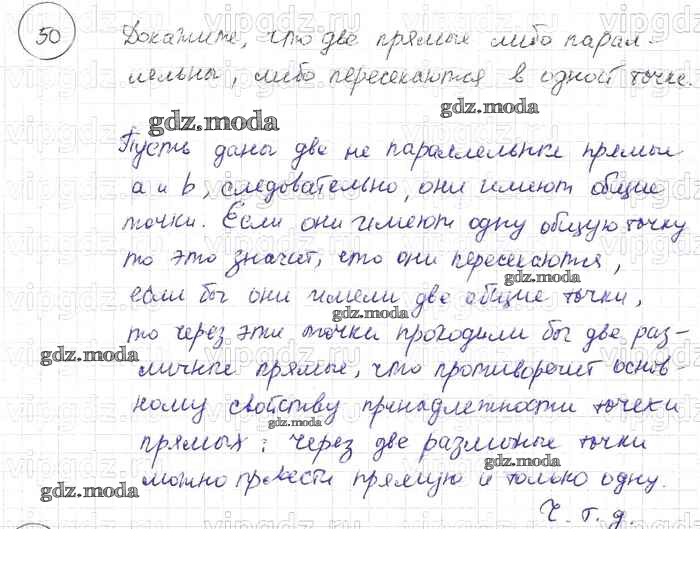 50
Докажите, что две прямые либо парал-
лельны, либо пересекаются в одной точке.
gdz.moda
gdz.moda
Пусть даны две не параллельные прямые
a и b, следовательно, они имеют общие
точки. Если они имеют одну общую точку
то это значит, что они пересекаются,
gdz.moda
если бы они имели две общие точки,
gdz.moda
то через эти точки проходили бы две раз-
gdz.moda
личные прямые, что противоречит основ-
gdz.moda
ному свойству принадлежности точек и
gdz.moda
прямых: через две различные точки
gdz.moda
можно провести прямую и только одну.
gdz.moda
Ч. т. д.